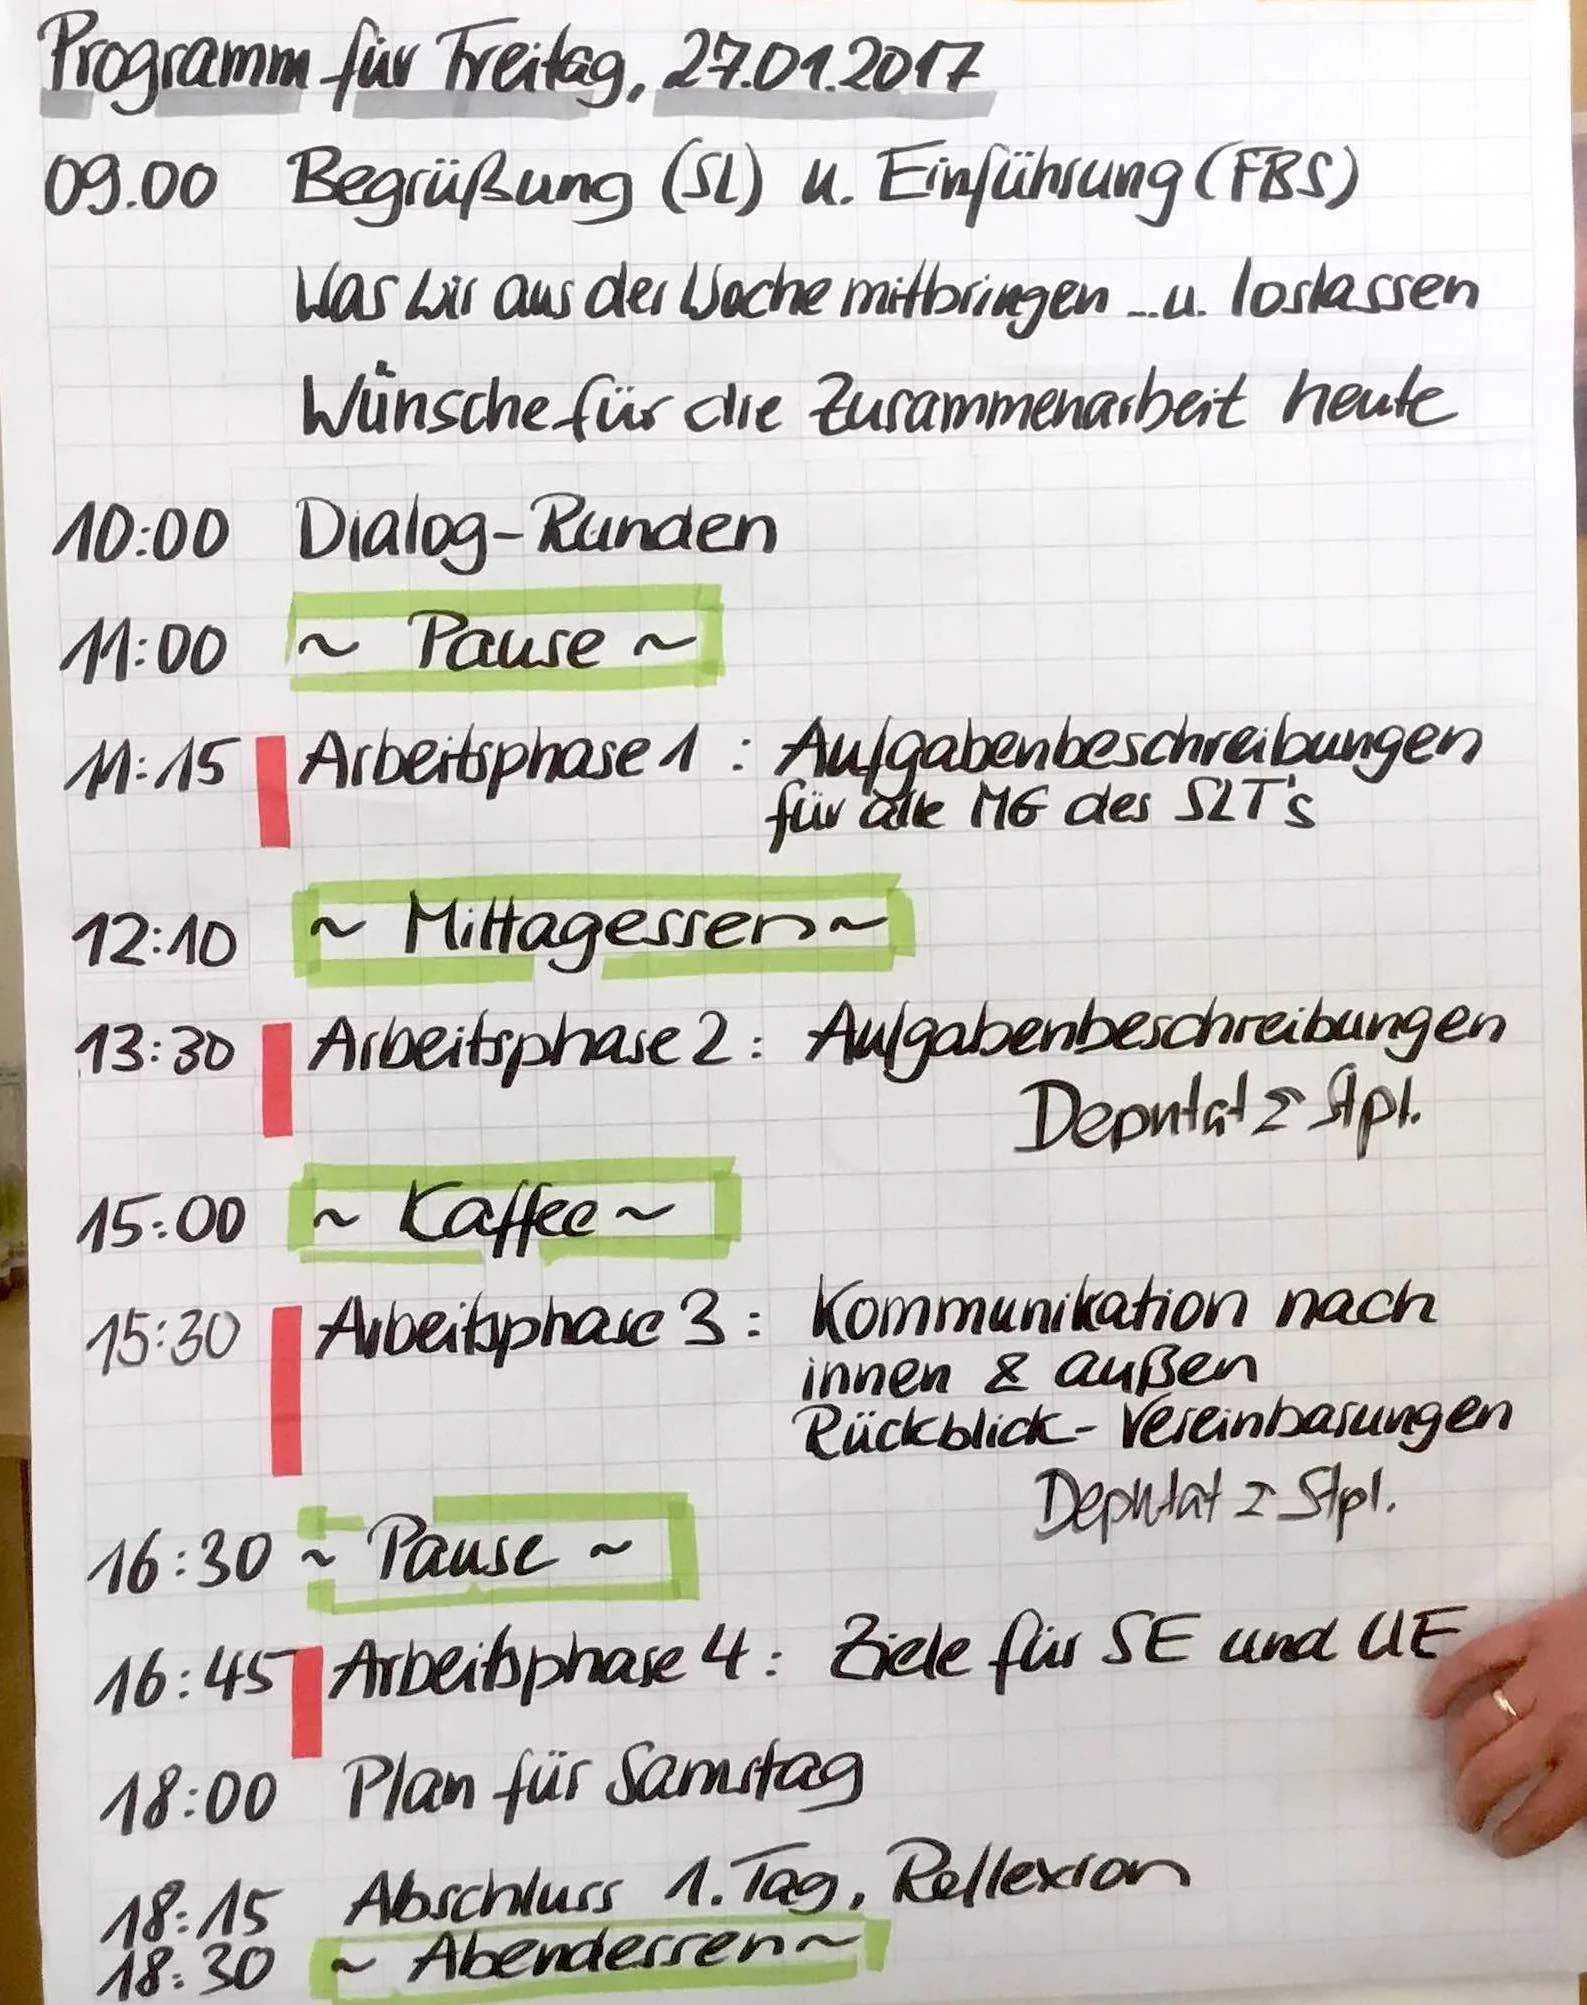 Programm für Freitag, 27.01.2017
09.00 Begrüßung (SL) u. Einführung (FBS)
Was wir aus der Woche mitbringen ... u. loslassen
Wünsche für die Zusammenarbeit heute
10:00 Dialog-Runden
11:00 ~ Pause ~
11:15 Arbeitsphase 1 : Aufgabenbeschreibungen
für alle MG des SLT's
12:10 ~ Mittagessen ~
13:30 Arbeitsphase 2 : Aufgabenbeschreibungen
Deputat Σ Stpl.
15:00 ~ Kaffee ~
15:30 Arbeitsphase 3 : Kommunikation nach
innen & außen
Rückblick - Vereinbarungen
Deputat Σ Stpl.
16:30 ~ Pause ~
16:45 Arbeitsphase 4 : Ziele für SE und UE
18:00 Plan für Samstag
18:15 Abschluss 1. Tag, Reflexion
18:30 ~ Abendessen ~